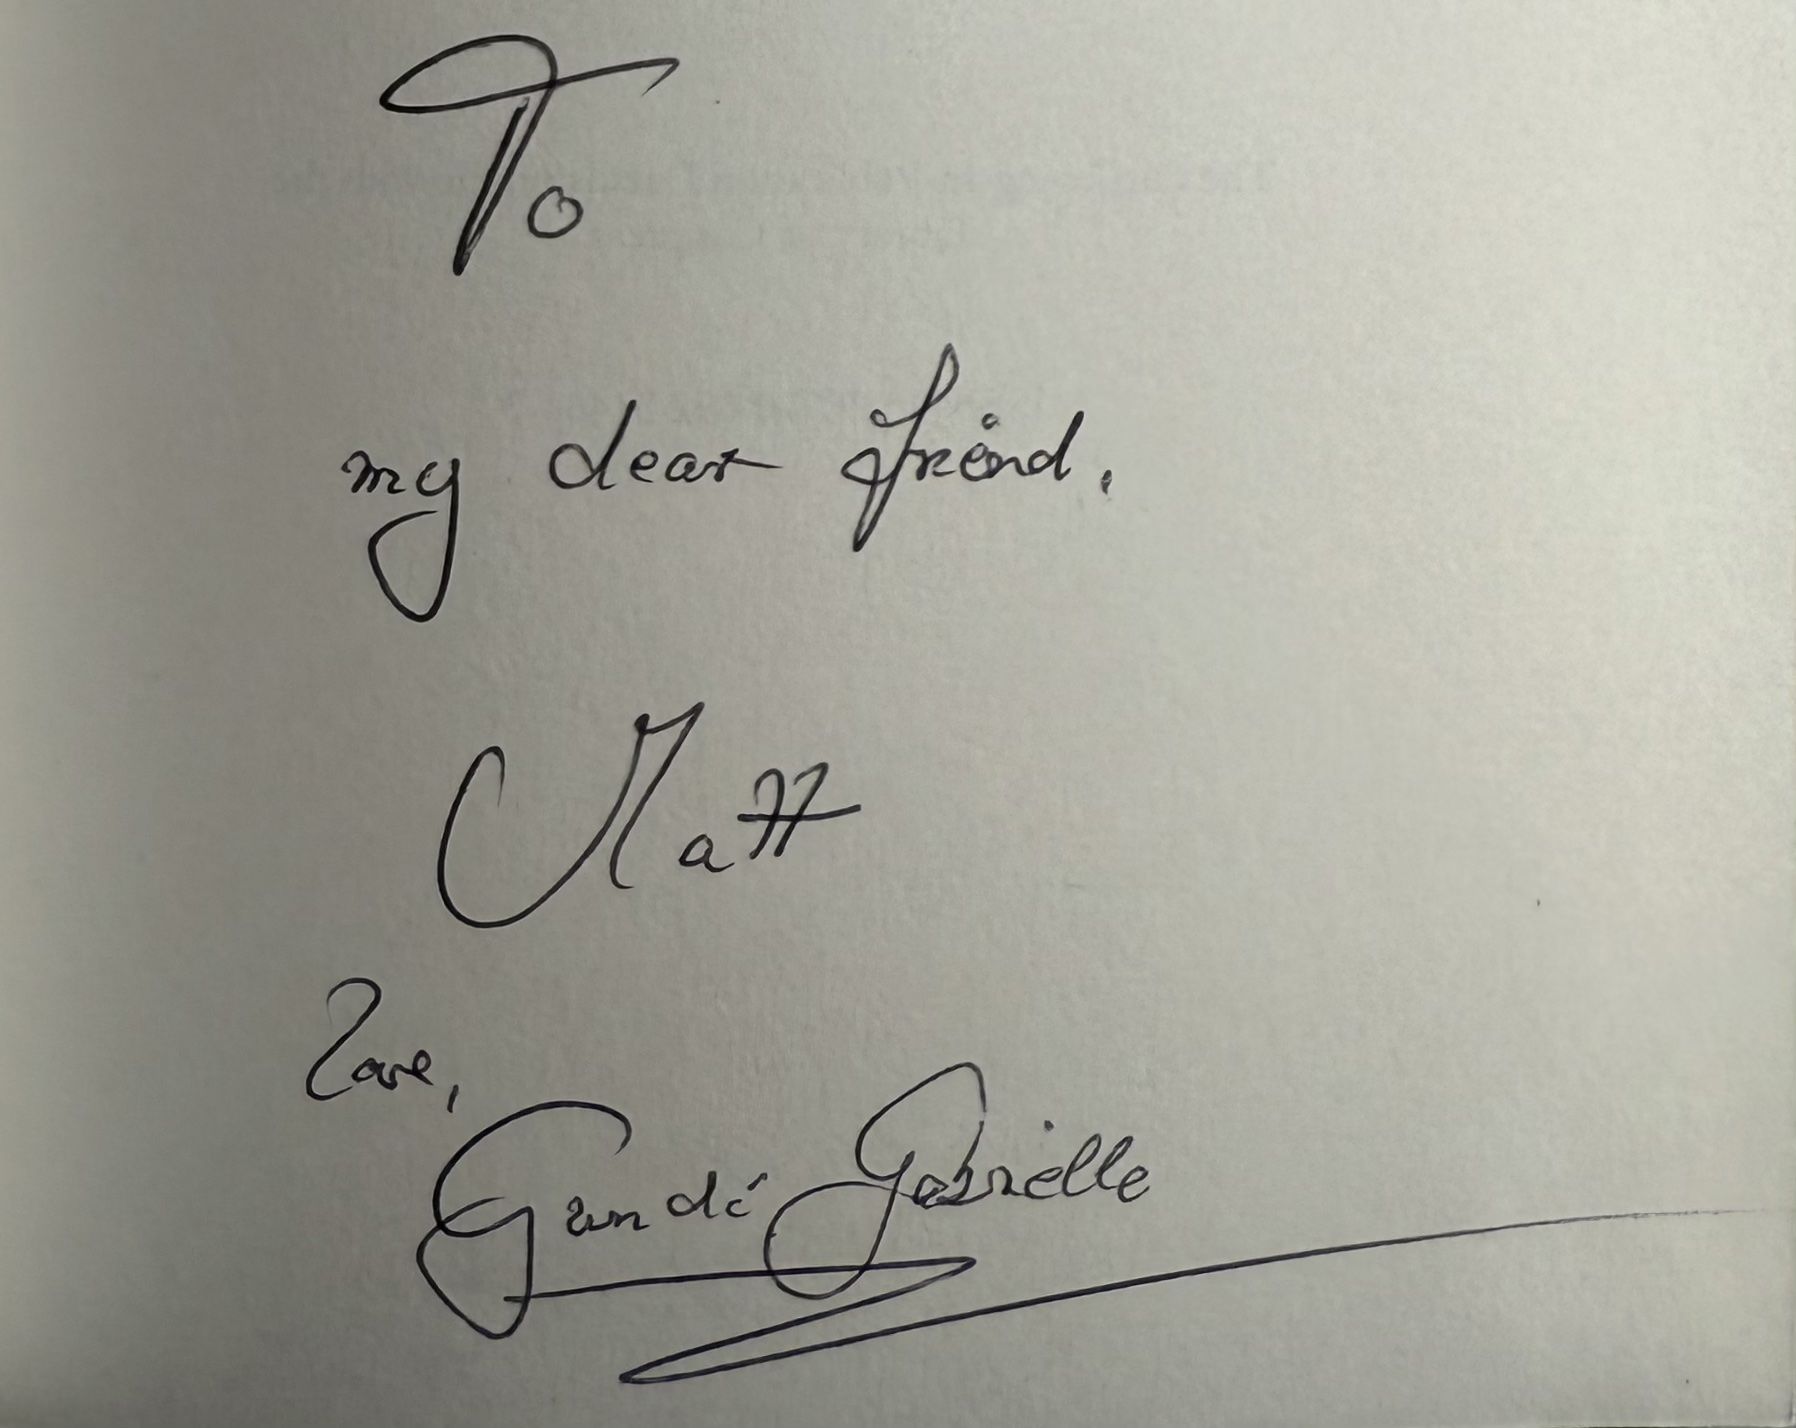 To
my dear friend,
Matt
Love,
Gandi Gabrielle